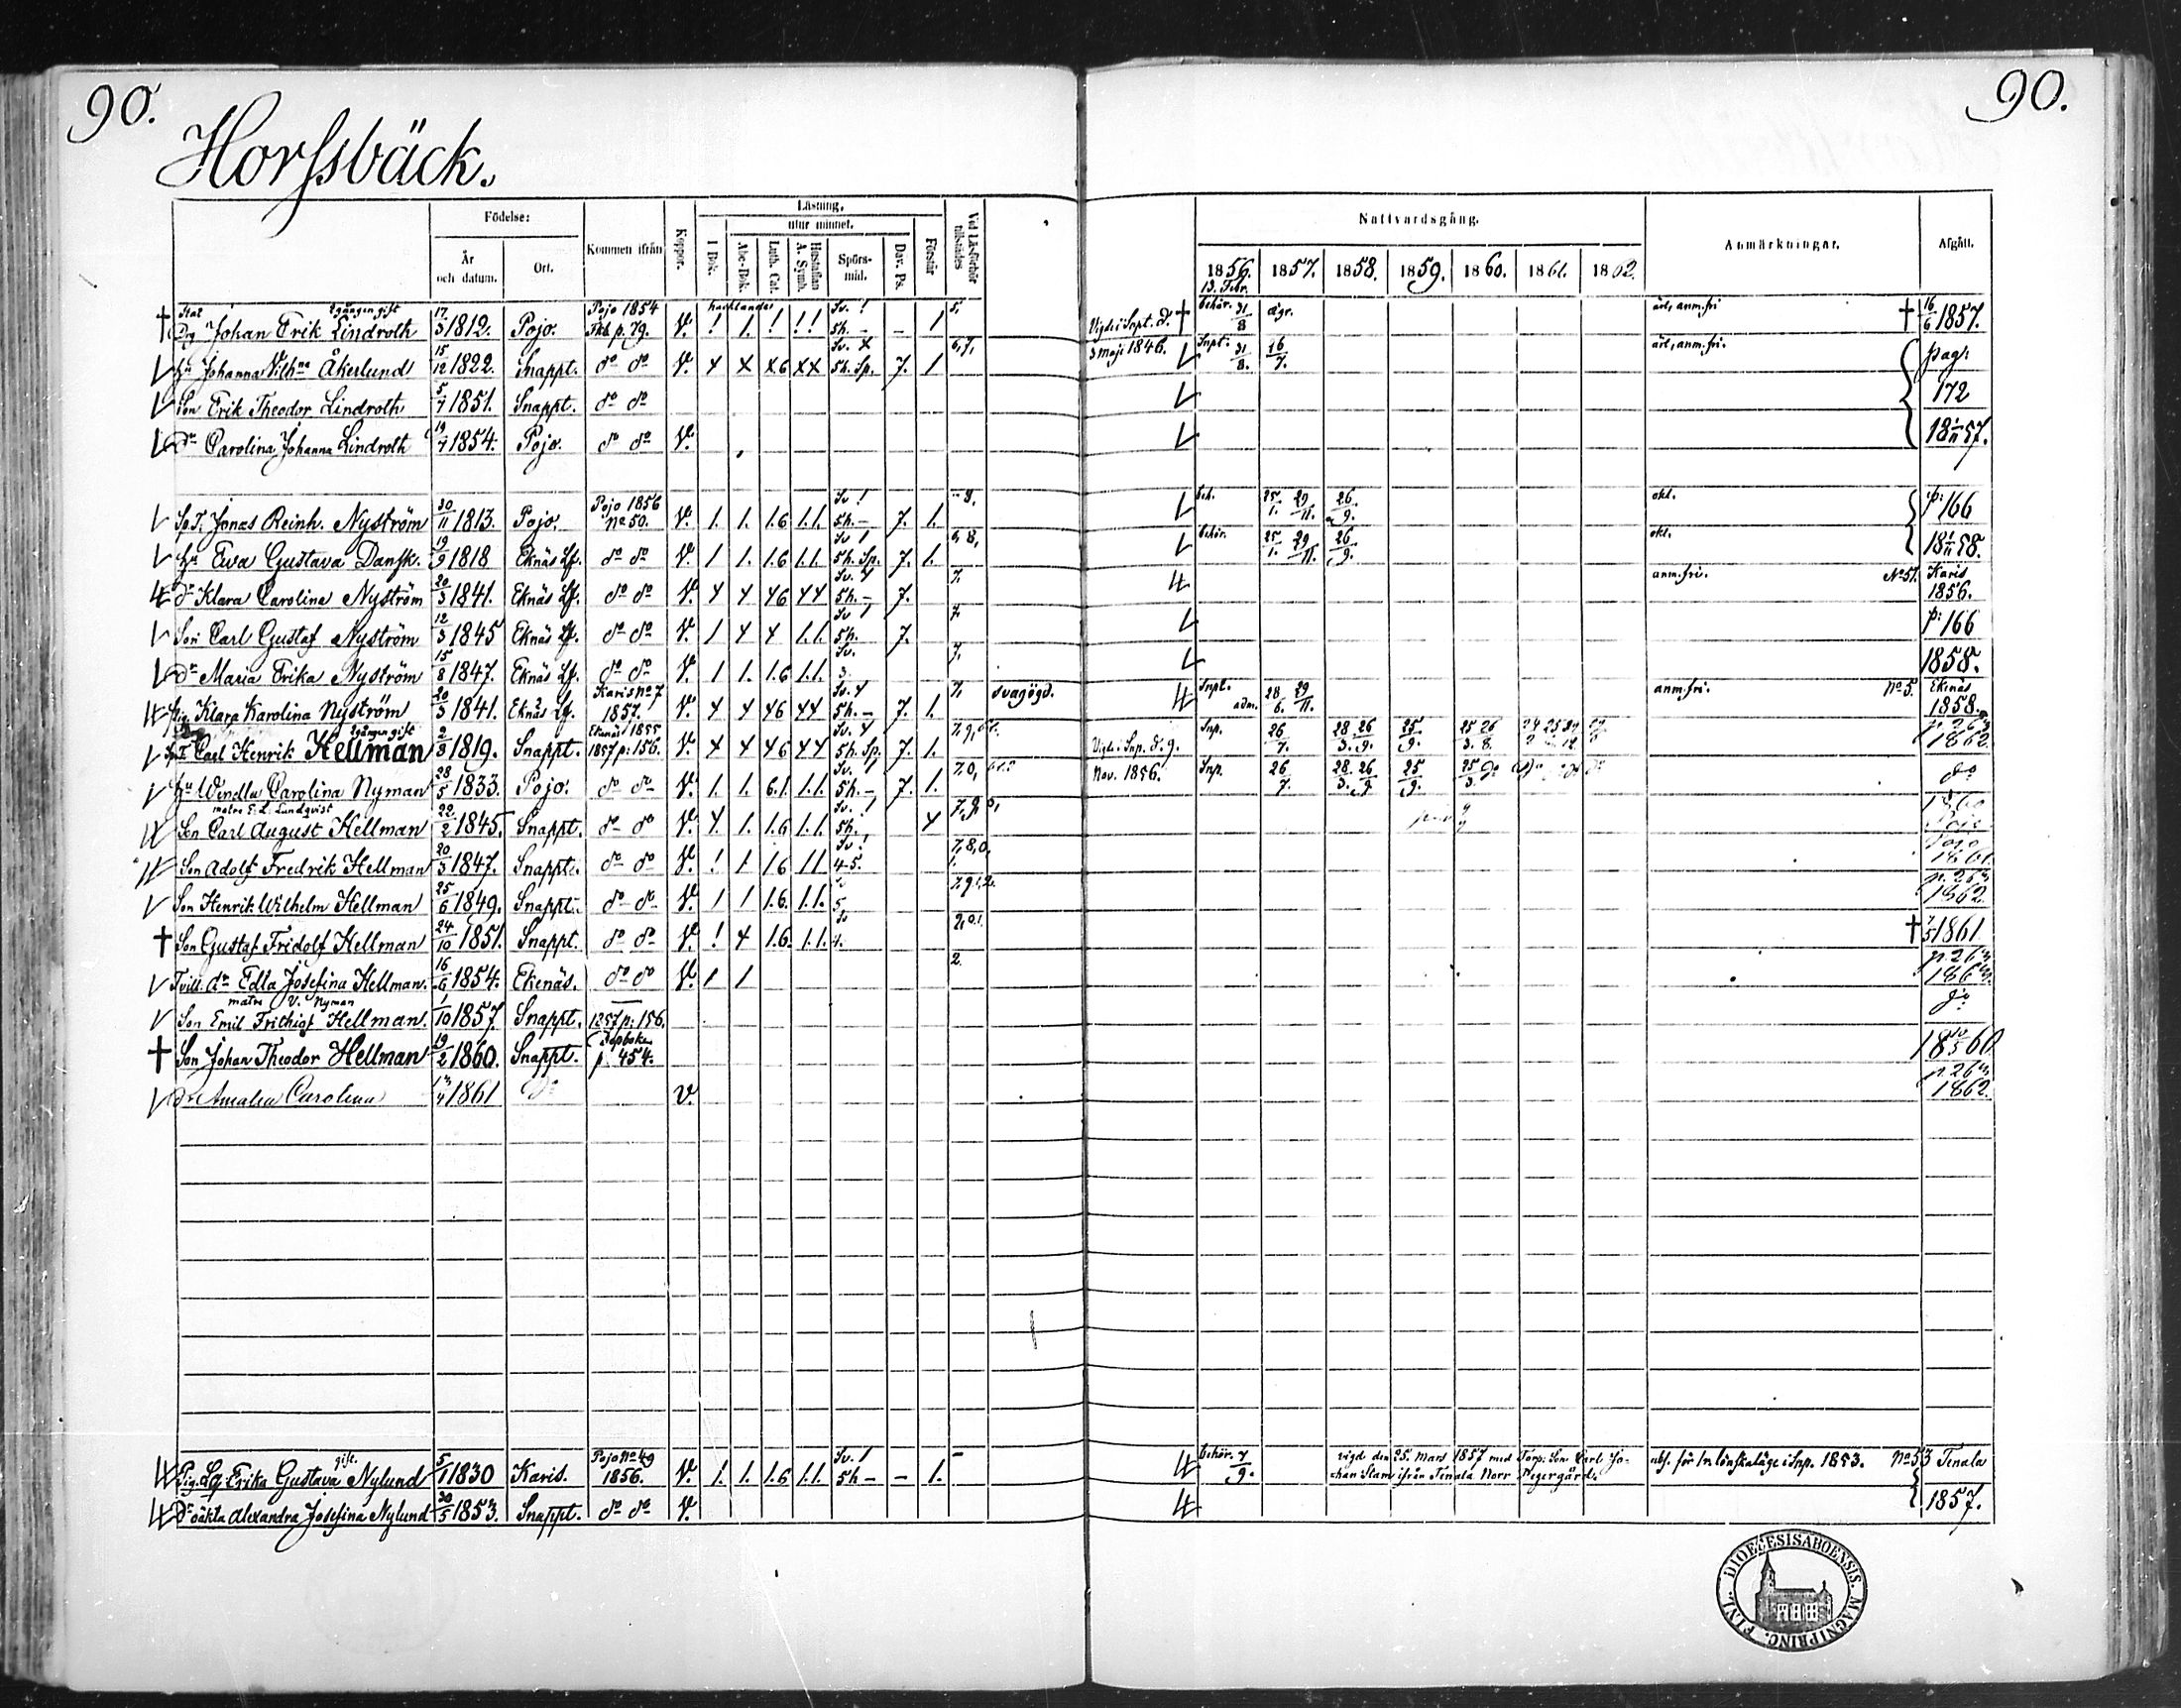 90.
90.
Horssbäck.
Födelse:
År och datum.
Ort.
Kommen ifrån
Koppor.
Läsning.
utur minnet.
I Bok.
Abc-Bok.
Luth. Cat.
Hustaflan A. Symb.
Spörsmål.
Dav. Ps.
Förstår
Vid Läsförhör tillstädes
Nattvardsgång.
1856. 1857. 1858. 1859. 1860. 1861. 1862.
13. Febr.
Anmärkningar.
Afgått.
† Johan Erik Lindroth 2gången gift 17/3 1812. Pojo. Pojo 1854 p. 79. V. Sv. ! 5h. - - 1 5. Vigde i Snpt. d. † behör. 31/8 ägr. ärl, anm. fri † 16/6 1857.
Hu Johanna Vilhna Åkerlund 15/12 1822. Snappt. do do V. + x x6 xx Sv. x 5h. Sp. 7. 1 6,7, 3 maji 1846. Snpt. 31/8. 16/7. ärl, anm. fri. pag:
Son Erik Theodor Lindroth 5/7 1851. Snappt. do do 172
Dr Carolina Johanna Lindroth 19/7 1854. Pojo. do do V. 18 1/11 57.
Sp. T. Jonas Reinh. Nyström 30/11 1813. Pojo. Pojo 1856 No 50. V. 1. 1. 1.6 1.1. Sv ! 5h. - 7. 1. 8, beh. 25/1. 29/11. 26/9. okl. p: 166
Hu Eva Gustava Dansk. 19/9 1818 Eknäs Lf. do do V. 1 1. 1.6 1.1. Sv 1 5h. Sp. 7. 1. 8, behör. 25/1. 29/11. 26/9. okl. 18 1/11 58.
Dr Klara Carolina Nyström 20/3 1841. Eknäs Lf. do do V. + + +6 ++ Sv. + 5h. - 7. 7. anm. fri. No 51. Karis 1856.
Son Carl Gustaf Nyström 12/3 1845 Eknäs Lf. do do V. 1 + + 1.1. Sv 1 5h. 7. 7. p: 166
Dr Maria Erika Nyström 15/8 1847. Eknäs Lf. do do V. 1 1. 1.6 1.1. Sv. 3. 7. 1858.
Pig. Klara Karolina Nyström 20/3 1841. Eknäs Lf. Karis No 7 1857. V. + + +6 ++ Sv. + 5h. - 7. 1. 7. svagögd. Snpt. adm. 28/6. 29/11. anm. fri. No 5. Ekenäs 1858.
Carl Henrik Hellman 2gången gift 2/3 1819. Snappt. Ekenäs 1855 1857 p: 156. V. + + +6 ++ Sv. + 5h. Sp. 7. 1. Vigde i Snp. d. 9. Snp. 26/7. 28/3. 26/9. 25/9. 25/3. 26/8. 1862.
Hu Wendla Carolina Nyman 28/5 1833. Pojo. do do V. 1. 1. 6.1. 1.1. Sv. 1 5h. - 7. 1. 7,0, Nov. 1856. Snp. 26/7. 28/3. 26/9. 25/9. 25/3. do do do
matre E. L. Lundqvist
Son Carl August Hellman 22/2 1845. Snappt. do do V. +. 1. 1.6 1.1. Sv. ! 5h. + 1860 Pojo
Son Adolf Fredrik Hellman 20/3 1847. Snappt. do do V. ! 1 1 6 1 1 Sv ! 4-5. 7,8,0,1. Pojo 1861.
Son Henrik Wilhelm Hellman 25/6 1849. Snappt. do do V. 1 1 1.6. 1.1. 5. 1862.
† Son Gustaf Fridolf Hellman 24/10 1851. Snappt. do do V. ! + 1.6. 1.1. Sv 4. † 1861
Tvill. dr Edla Josefina Hellman. 16/6 1854. Ekenäs. do do V. 1 1 2.
matre V. Nyman
Son Emil Frithiof Hellman. 1/10 1857. Snappt. 1857 p: 156. do
† Son Johan Theodor Hellman 19/2 1860. Snappt. p. 454. 1860
Dr Amalia Carolina 1861 do v. 1862.
Pig. Erika Gustava Nylund gift. 5/1 1830 Karis. Pojo No 49 1856. V. 1. 1. 1.6 1.1. Sv. 1 5h - - 1. - behör. 7/9. vigd den 25. Mars 1857 med Torp: Son Carl Jo- abs. för 1n lönskaläge i Snp. 1853. No 53 Tenala
han Stam ifrån Tenala Norr
Dr oäkta Alexandra Josefina Nylund 30/5 1853. Snappt. do do V. 1857.
DIOECESIS ABOENSIS. MAGN. PRINC. FINL.